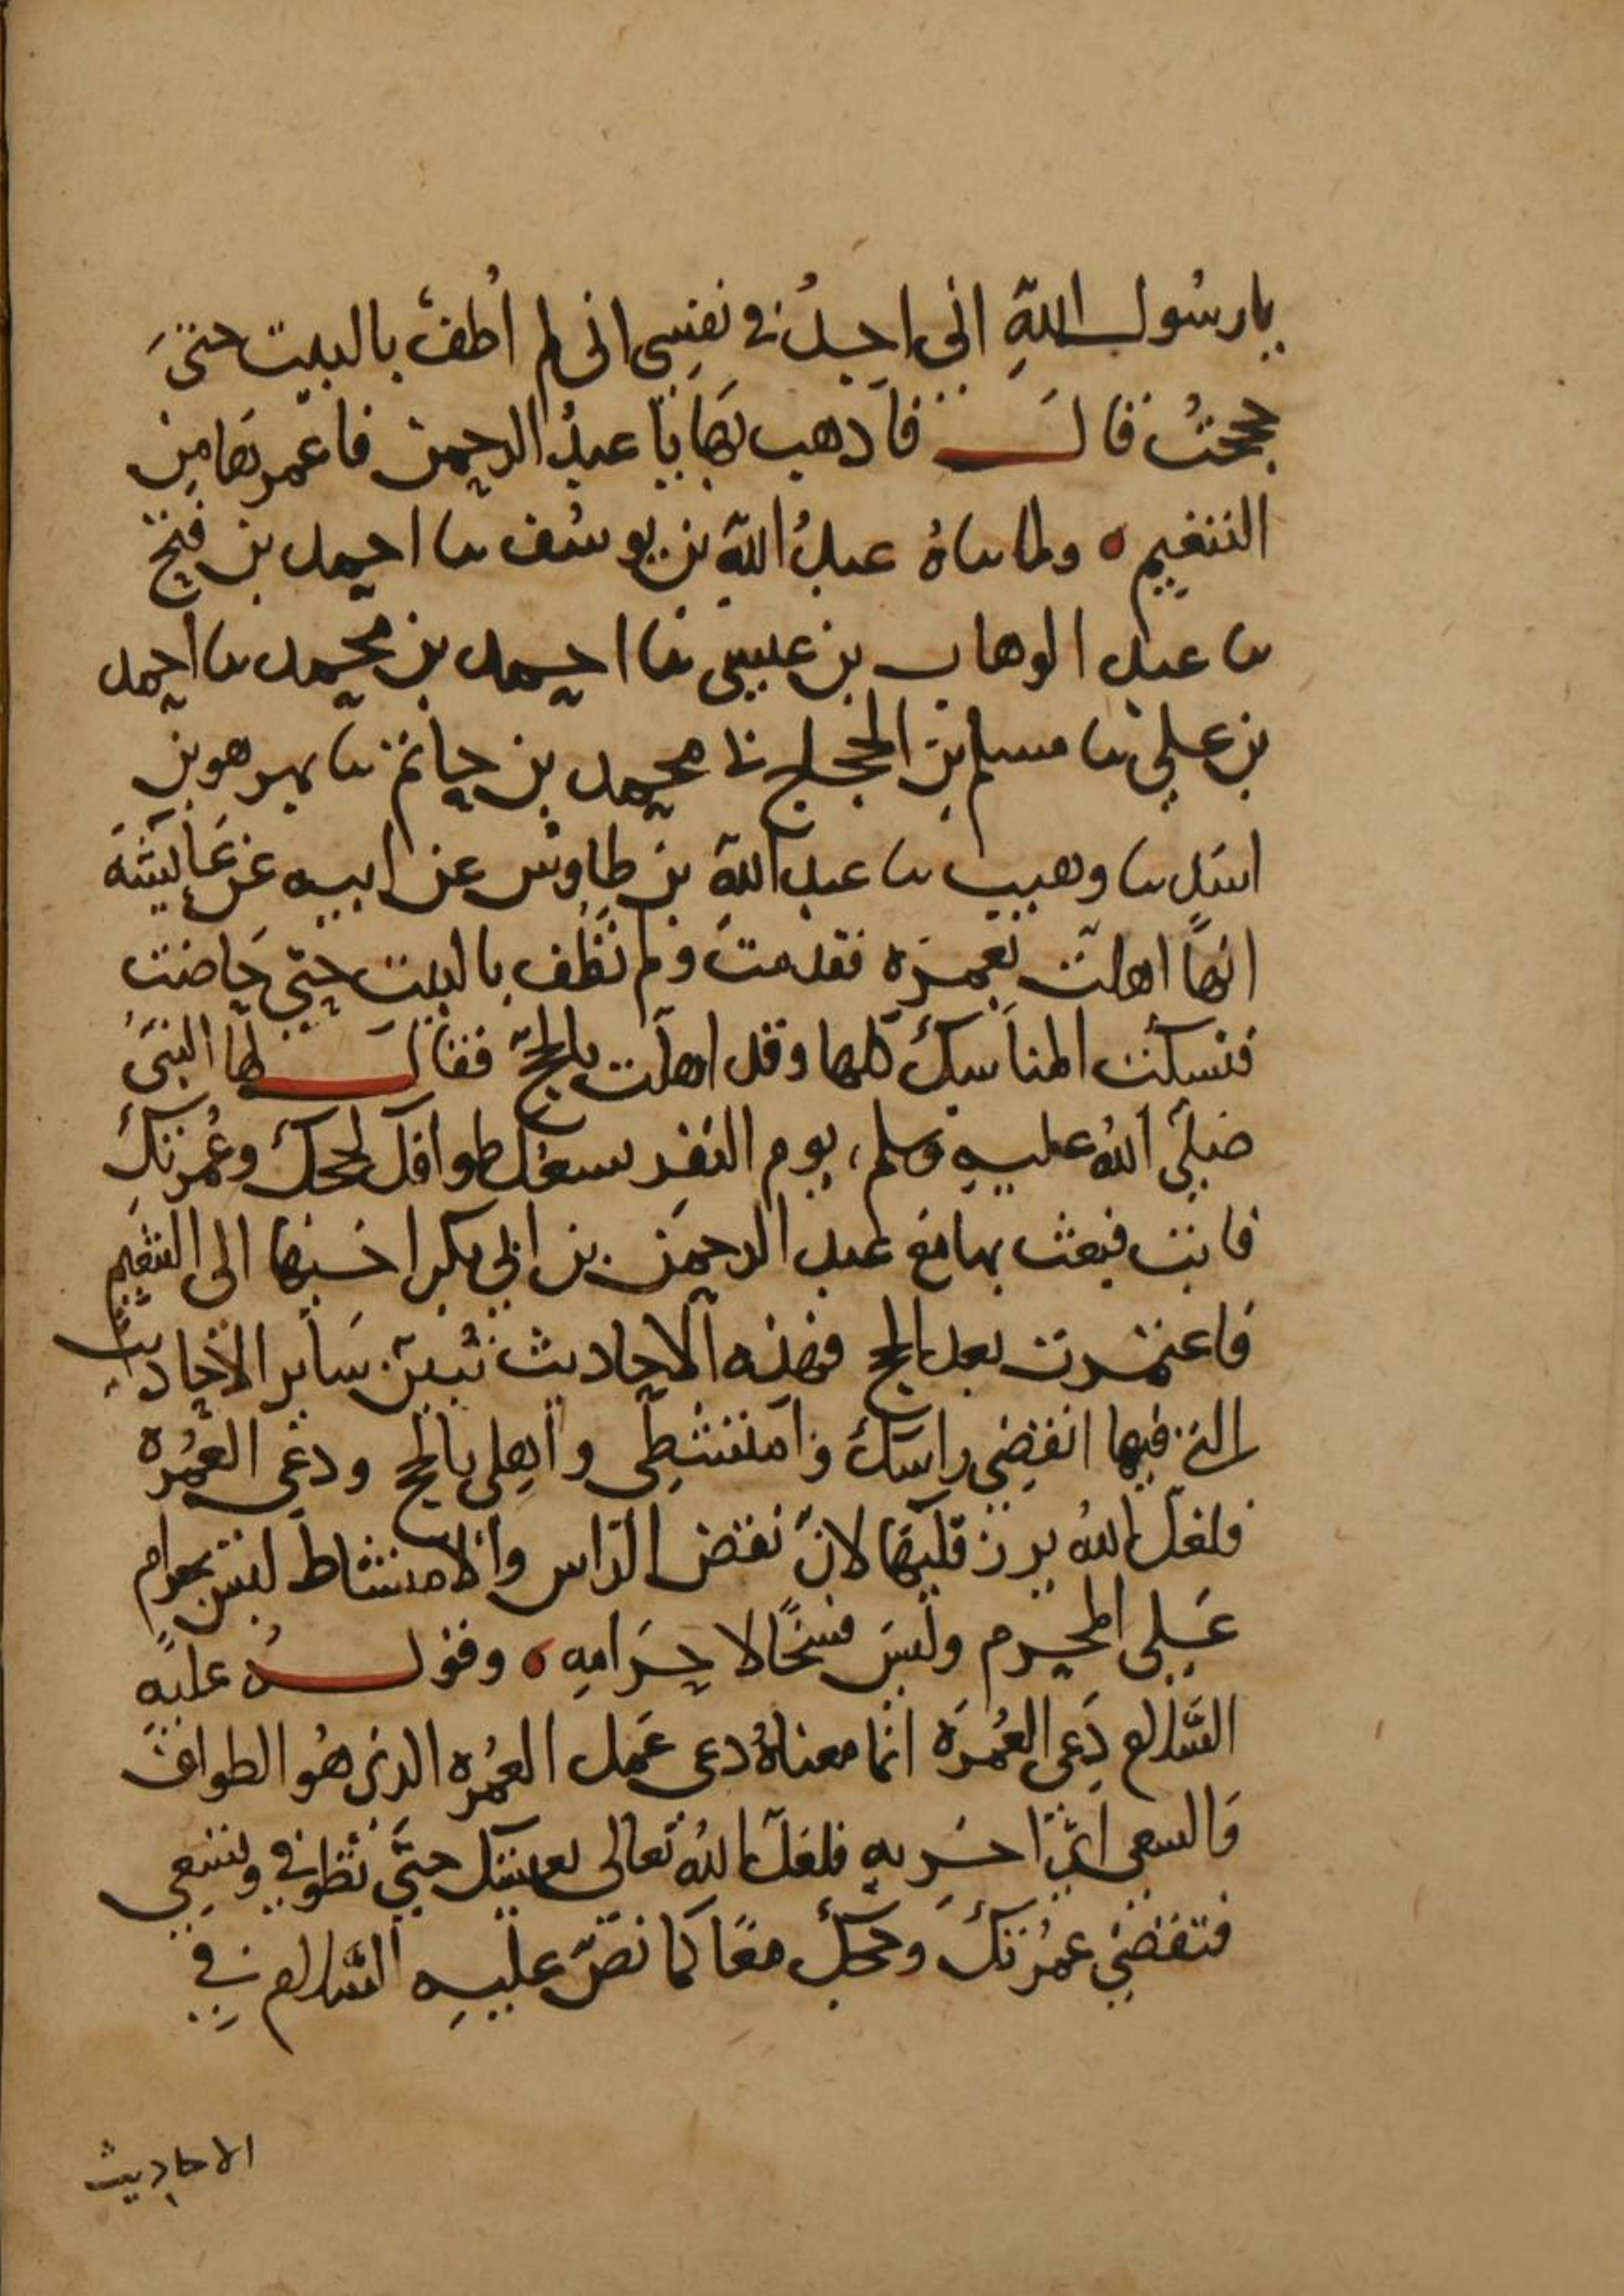 يا رسُول اللهِ انى اجدُ في نفسِي انى لم اُطفْ بالبيت حتىَ
حججتُ قالَ فاذهب بهَا يَا عبدَ الرحمن فاعمرهَا مِن
التنعيم ٥ ولما ساهُ عبدُ الله بن يوسُف سا احمد بن فتح
سا عبد الوهاب بن عيسى ثنا احمد بن محمد سا احمد
بن علي سا مسلم بن الحجاج نا محمد بن حاتم سا بهز هو بن
اسَد سا وهيب سا عبد الله بن طاوس عن ابيه عن عَايشَة
انهاَ اهلت بعمرَه فقدمت ولم تطُف بالبيت حتى حَاضت
فنسكت المناسِك كلها وقد اهلت بالحجّ فقالَ لها النبيُ
صَلى اللهُ عليهِ وسلم يوم النفر يسعك طوافك لحجك وعُمرتكِ
فابت فبعث بها مَع عبد الرحمن بن ابي بكر اخيها الى التنعيم
فاعتمرت بعد الحج فهذه الاحاديث تُبين سَاير الاحاديث
التى فيها انقضِي راسَك وَامتشطِى واهلى بالحج ودعي العمُره
فلعل الله يرزقكيهَا لانّ نقض الراس والامتشاط ليسَ بحرام
عَلى المحرم وليسَ فسخًا لاحرَامهِ ٥ وقولُه عليهِ
السَّلام دَعى العُمرَه انما معناهُ دعى عَمل العُمره الذى هُو الطوافَ
وَالسعى اىْ اخّريهِ فلعل اللهُ تعالى يعينك حتَّى تطوفي وتسعِى
فتقضي عمرُتك وحجك معًا كما نصّ عليهِ السَّلام فِي
الاحاديث